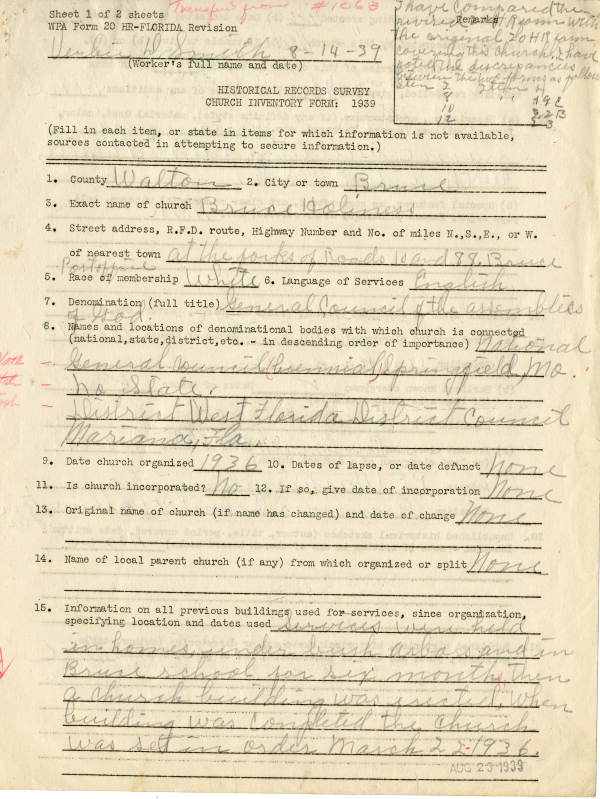 Sheet 1 of 2 sheets
Transfer from #1063
WPA Form 20 HR-FLORIDA Revision
D. Smith 8-14-39
(Worker's full name and date)
Remarks
I have compared the
revised form with
the original 20 HR form
covering this church. I have
noted the discrepancies
between the two forms as follows
Item 2 Item 4
8 " 19 C
10 22 B
12 23
HISTORICAL RECORDS SURVEY
CHURCH INVENTORY FORM: 1939
(Fill in each item, or state in items for which information is not available,
sources contacted in attempting to secure information.)
1. County Walton 2. City or town Bruce
3. Exact name of church Bruce Holiness
4. Street address, R.F.D. route, Highway Number and No. of miles N.,S.,E., or W.
of nearest town at the forks of Roads 10 and 88. Bruce
Postoffice
5. Race of membership White 6. Language of Services English
7. Denomination (full title) General Council of the assemblies
of God.
8. Names and locations of denominational bodies with which church is connected
(national,state,district,etc. - in descending order of importance) National
General Council (biennial) Springfield, Mo.
No State.
District West Florida District Council
Mariana, Fla.
9. Date church organized 1936 10. Dates of lapse, or date defunct None
11. Is church incorporated? No 12. If so, give date of incorporation None
13. Original name of church (if name has changed) and date of change None
14. Name of local parent church (if any) from which organized or split None
15. Information on all previous buildings used for services, since organization,
specifying location and dates used Services were held
in homes, under bush arbors and in
Bruce school for six months, then
a church building was erected. When
building was completed the church
was set in order March 22-1936.
AUG 23 1939